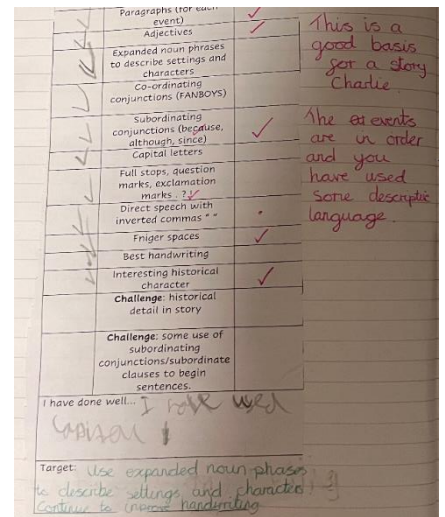 Paragraphs (for each
event)
Adjectives
Expanded noun phrases
to describe settings and
characters
Co-ordinating
conjunctions (FANBOYS)
Subordinating
conjunctions (because,
although, since)
Capital letters
Full stops, question
marks, exclamation
marks . ?
Direct speech with
inverted commas " "
Fniger spaces
Best handwriting
Interesting historical
character
Challenge: historical
detail in story
Challenge: some use of
subordinating
conjunctions/subordinate
clauses to begin
sentences.
I have done well... I have used
capital
Target: Use expanded noun phases
to describe settings and characters
Continue to improve handwriting
This is a
good basis
for a story
Charlie.
The events
are in order
and you
have used
some descriptive
language.